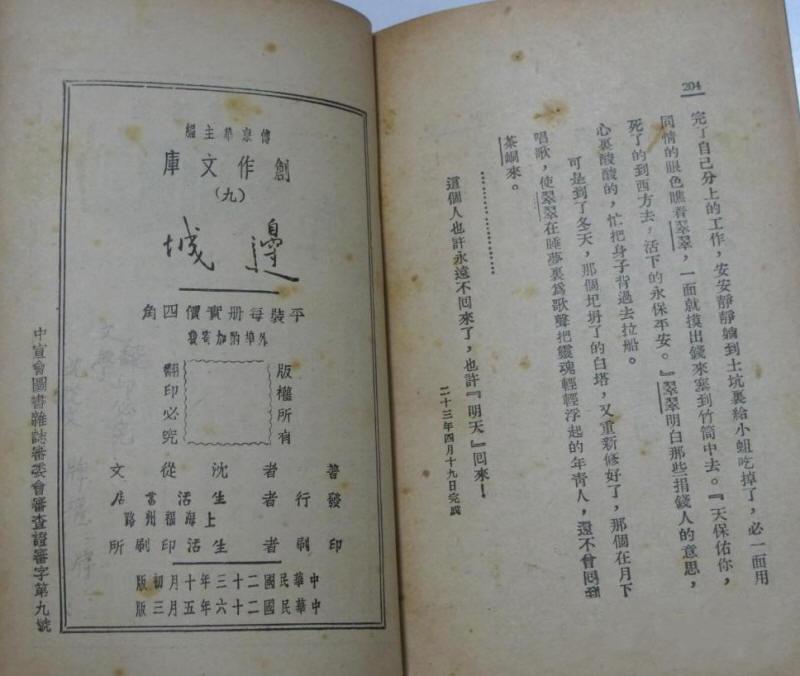 204
完了自己分上的工作，安安靜靜躺到土坑裏給小蛆吃掉了，必一面用
同情的眼色瞧着翠翠，一面就摸出錢來塞到竹筒中去。『天保佑你，
死了的到西方去，活下的永保平安。』翠翠明白那些捐錢人的意思，
心裏酸酸的，忙把身子背過去拉船。
可是到了冬天，那個圮坍了的白塔，又重新修好了，那個在月下
唱歌，使翠翠在睡夢裏爲歌聲把靈魂輕輕浮起的年青人，還不曾回到
茶峒來。
………………
這個人也許永遠不回來了，也許『明天』回來！
二十三年四月十九日完成
傅東華主編
創作文庫
（九）
邊城
平裝每册實價四角
外埠酌加寄費
版權所有
翻印必究
著者 沈從文
發行者 生活書店
上海福州路
印刷者 生活印刷所
中華民國二十三年十月初版
中華民國二十六年五月三版
中宣會圖書雜誌審委會審查證審字第九號